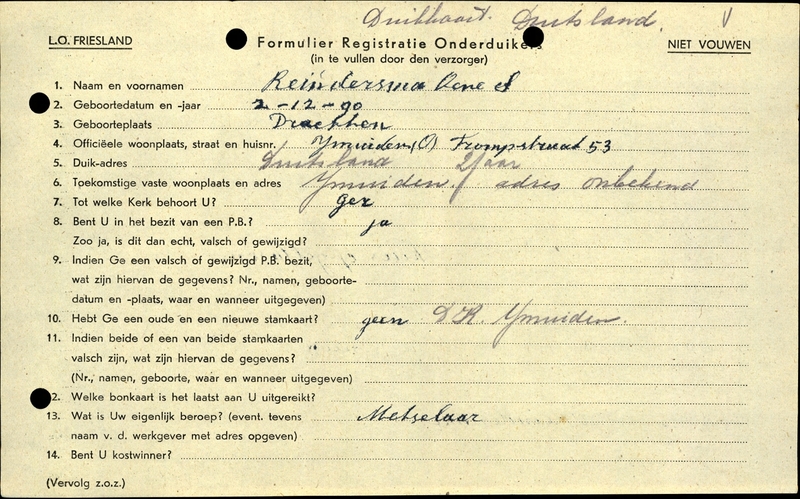 Duitsland. V
L.O. FRIESLAND
Formulier Registratie Onderduikers
NIET VOUWEN
(in te vullen door den verzorger)
1. Naam en voornamen Reindersma
2. Geboortedatum en -jaar 2-12-90
3. Geboorteplaats Drachten
4. Officiëele woonplaats, straat en huisnr. Ymuiden (O) Trompstraat 53
5. Duik-adres Duitsland 2 jaar
6. Toekomstige vaste woonplaats en adres Ymuiden / adres onbekend
7. Tot welke Kerk behoort U? ger
8. Bent U in het bezit van een P.B.? ja
Zoo ja, is dit dan echt, valsch of gewijzigd?
9. Indien Ge een valsch of gewijzigd P.B. bezit,
wat zijn hiervan de gegevens? Nr., namen, geboorte-
datum en -plaats, waar en wanneer uitgegeven)
10. Hebt Ge een oude en een nieuwe stamkaart? geen D.K. Ymuiden.
11. Indien beide of een van beide stamkaarten
valsch zijn, wat zijn hiervan de gegevens?
(Nr., namen, geboorte, waar en wanneer uitgegeven)
2. Welke bonkaart is het laatst aan U uitgereikt?
13. Wat is Uw eigenlijk beroep? (event. tevens Metselaar
naam v. d. werkgever met adres opgeven)
14. Bent U kostwinner?
(Vervolg z.o.z.)